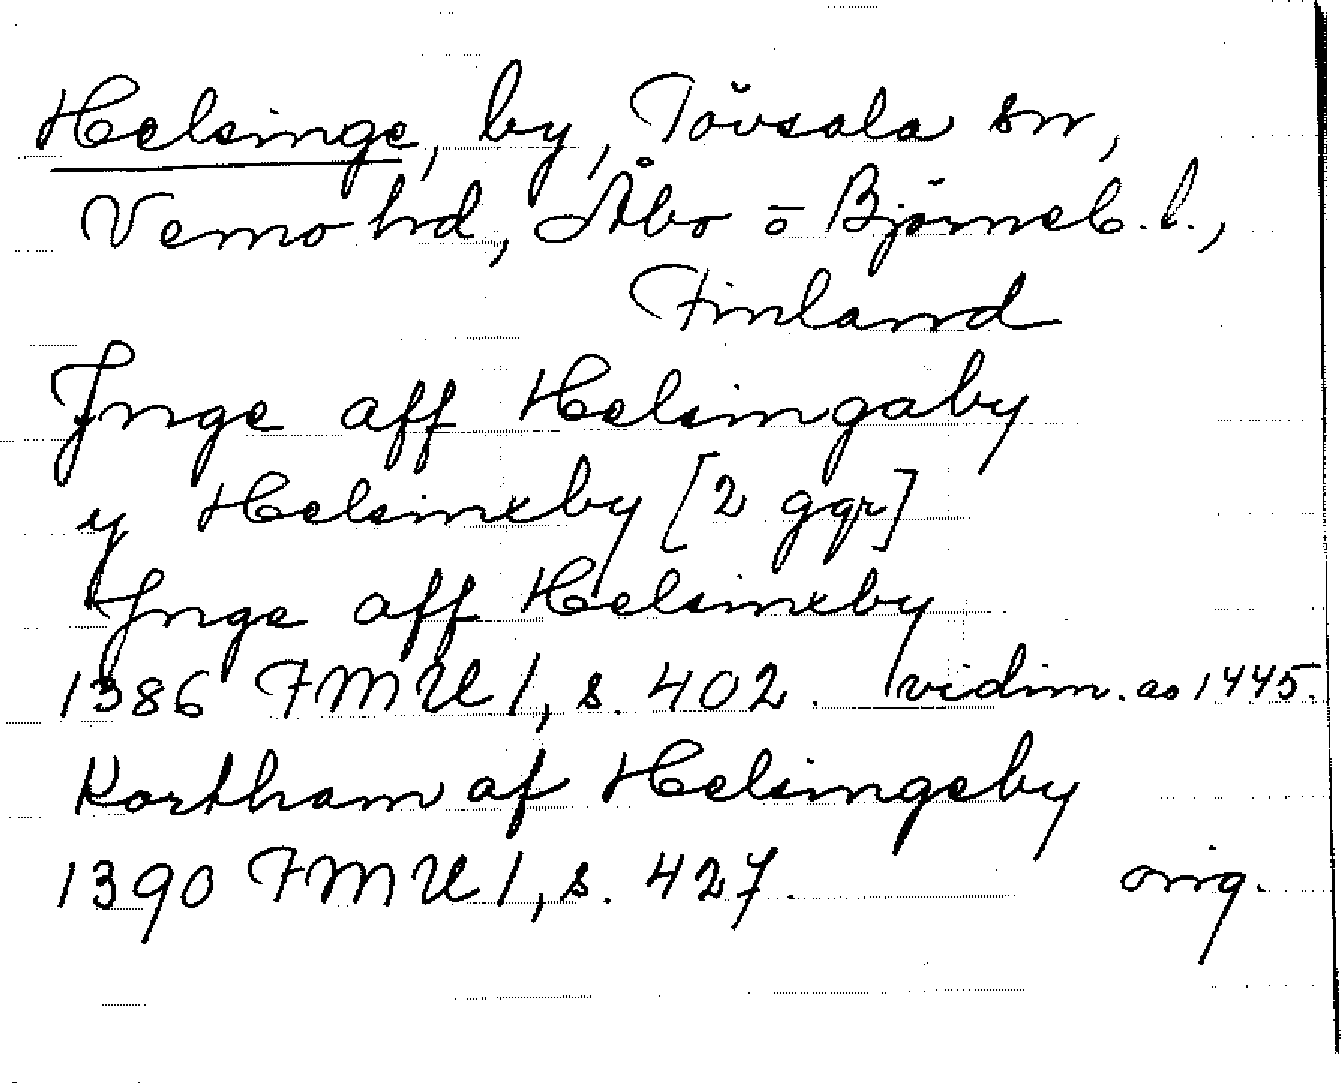 Helsinge, by, Tövsala sn,
Vemo hd, Åbo o Björneb. l.,
Finland
Jnge aff Helsingaby
y Helsinxby [2 ggr]
Jnge aff Helsinxby
1386 FMU 1, s. 402. vidim. ao 1445.
Kortham af Helsingeby
1390 FMU 1, s. 427. orig.